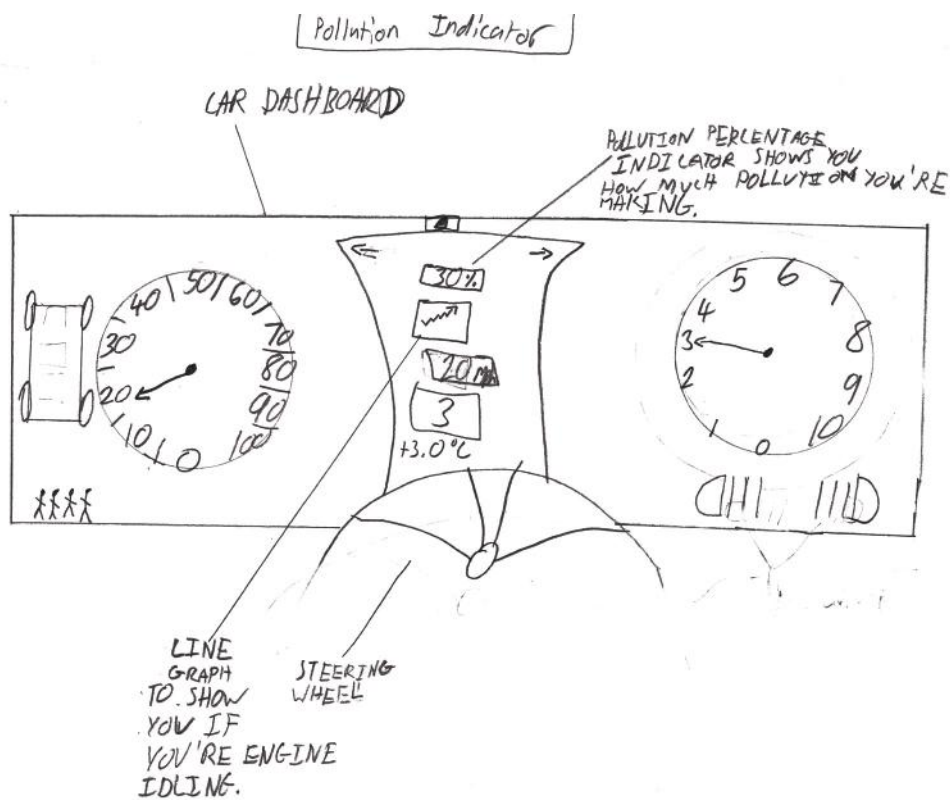 Pollution Indicator
CAR DASHBOARD
POLLUTION PERCENTAGE
INDICATOR SHOWS YOU
HOW MUCH POLLUTION YOU'RE
MAKING.
30%
20
3
+3.0°C
0
10
20
30
40
50
60
70
80
90
100
0
1
2
3
4
5
6
7
8
9
10
LINE
GRAPH
TO SHOW
YOU IF
YOU'RE ENGINE
IDLING.
STEERING
WHEEL